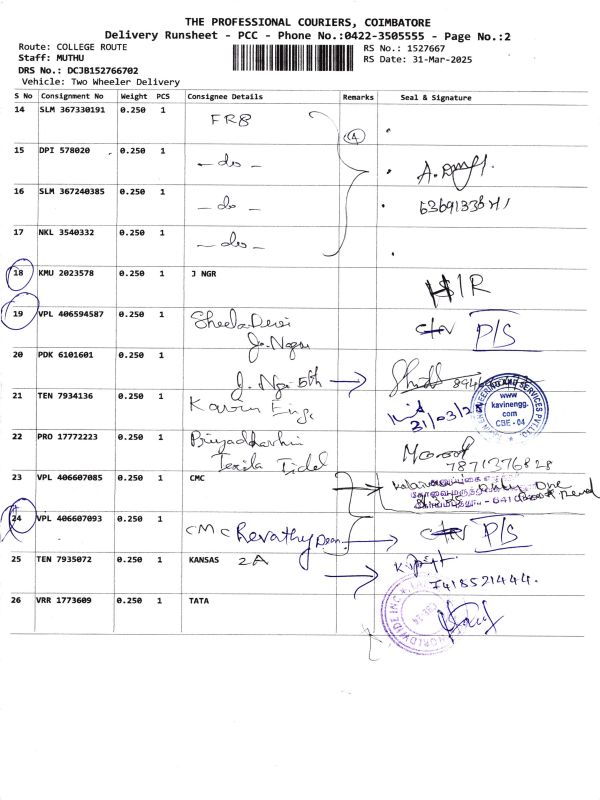 THE PROFESSIONAL COURIERS, COIMBATORE
Delivery Runsheet - PCC - Phone No.:0422-3505555 - Page No.:2
Route: COLLEGE ROUTE
RS No.: 1527667
Staff: MUTHU
RS Date: 31-Mar-2025
DRS No.: DCJB152766702
Vehicle: Two Wheeler Delivery
S No Consignment No Weight PCS Consignee Details Remarks Seal & Signature
14 SLM 367330191 0.250 1 FRB
15 DPI 578020 0.250 1 - do -
16 SLM 367240385 0.250 1 - do -
17 NKL 3540332 0.250 1 - do -
18 KMU 2023578 0.250 1 J NGR
19 VPL 406594587 0.250 1 Sheela Devi P/S
J. Nagar
20 PDK 6101601 0.250 1 J. Ngr 5th
21 TEN 7934136 0.250 1 Kavin Eng. 31/03/25
www
kavinengg.
com
CBE - 04
22 PRO 17772223 0.250 1 Priyadharshini
Texila Tidel 7871376828
23 VPL 406607085 0.250 1 CMC
24 VPL 406607093 0.250 1 CMC Revathy Dean P/S
25 TEN 7935072 0.250 1 KANSAS 2A
7418521444.
26 VRR 1773609 0.250 1 TATA